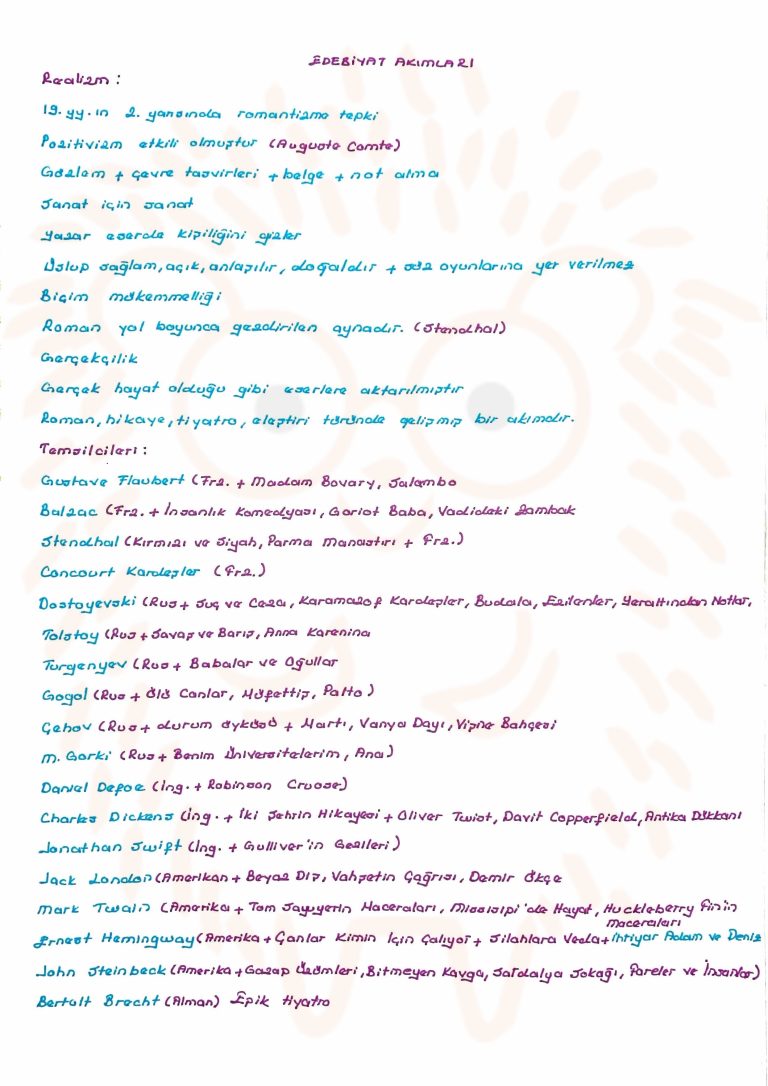 EDEBİYAT AKIMLARI
Realizm :
19. yy. ın 2. yarısında romantizme tepki
Pozitivizm etkili olmuştur (Auguste Comte)
Gözlem + çevre tasvirleri + belge + not alma
Sanat için sanat
Yazar eserde kişiliğini gizler
Üslup sağlam, açık, anlaşılır, doğaldır + söz oyunlarına yer verilmez
Biçim mükemmelliği
Roman yol boyunca gezdirilen aynadır. (Stendhal)
Gerçekçilik
Gerçek hayat olduğu gibi eserlere aktarılmıştır
Roman, hikaye, tiyatro, eleştiri türünde gelişmiş bir akımdır.
Temsilcileri :
Gustave Flaubert (Frz. + Madam Bovary, Salambo
Balzac (Frz. + İnsanlık Komedyası, Goriot Baba, Vadideki Zambak
Stendhal (Kırmızı ve Siyah, Parma Manastırı + Frz.)
Concourt Kardeşler (Frz.)
Dostoyevski (Rus + Suç ve Ceza, Karamazof Kardeşler, Budala, Ezilenler, Yeraltından Notlar,
Tolstoy (Rus + Savaş ve Barış, Anna Karenina
Turgenyev (Rus + Babalar ve Oğullar
Gogol (Rus + Ölü Canlar, Müfettiş, Palto)
Çehov (Rus + durum öyküsü + Martı, Vanya Dayı, Vişne Bahçesi
M. Gorki (Rus + Benim Üniversitelerim, Ana)
Daniel Defoe (İng. + Robinson Cruose)
Charles Dickens (İng. + İki Şehrin Hikayesi + Oliver Twist, Davit Copperfield, Antika Dükkanı
Jonathan Swift (İng. + Gulliver'in Gezileri)
Jack London (Amerikan + Beyaz Diş, Vahşetin Çağrısı, Demir Ökçe
Mark Twain (Amerika + Tom Sayyerin Maceraları, Missisipi'de Hayat, Huckleberry Fin'in
maceraları
Ernest Hemingway (Amerika + Çanlar Kimin İçin Çalıyor + Silahlara Veda + İhtiyar Adam ve Deniz
John Steinbeck (Amerika + Gazap Üzümleri, Bitmeyen Kavga, Sardalya Sokağı, Fareler ve İnsanlar)
Bertolt Brecht (Alman) Epik tiyatro